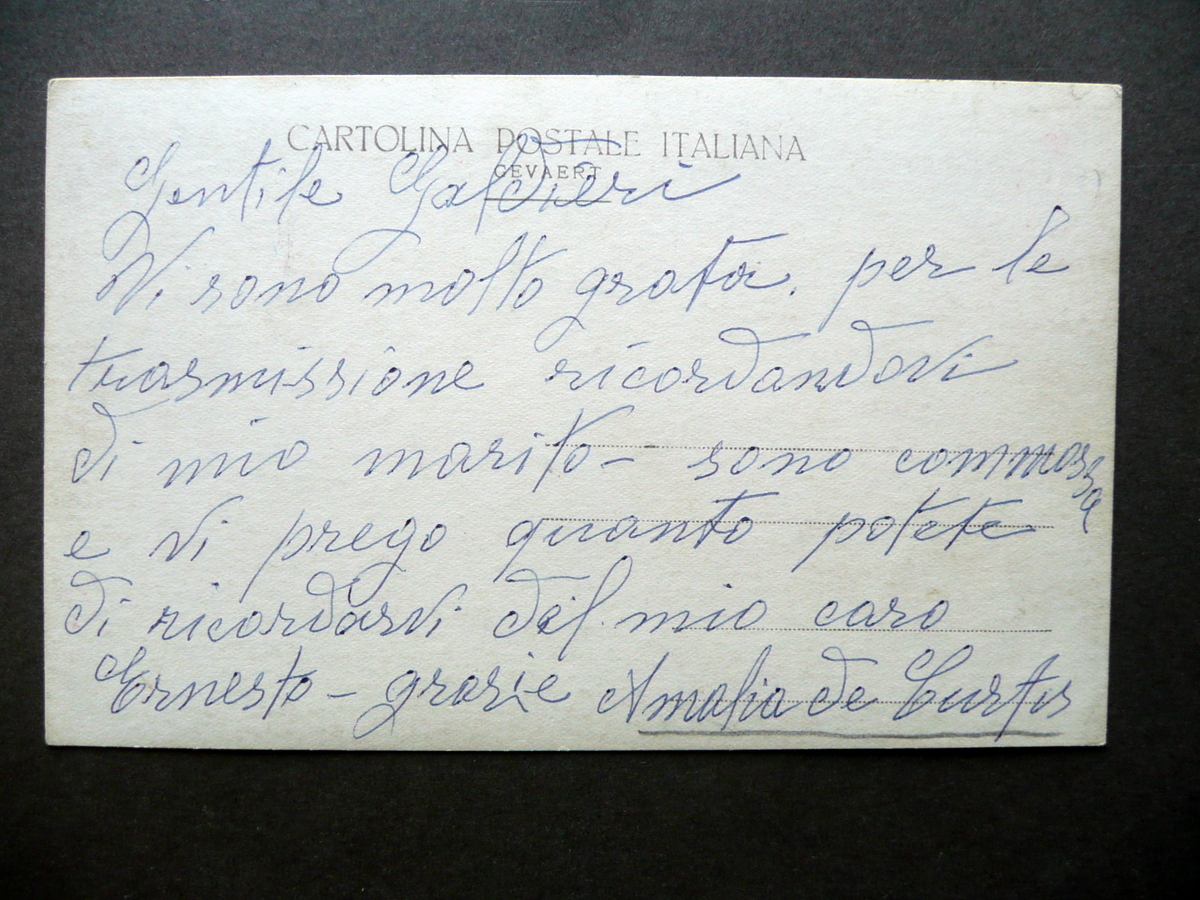 CARTOLINA POSTALE ITALIANA
GEVAERT
Gentile Galdieri
Vi sono molto grata. per le
trasmissione ricordandovi
di mio marito - sono commossa
e vi prego quanto potete
di ricordarvi del mio caro
Ernesto - grazie Amalia de Curtis